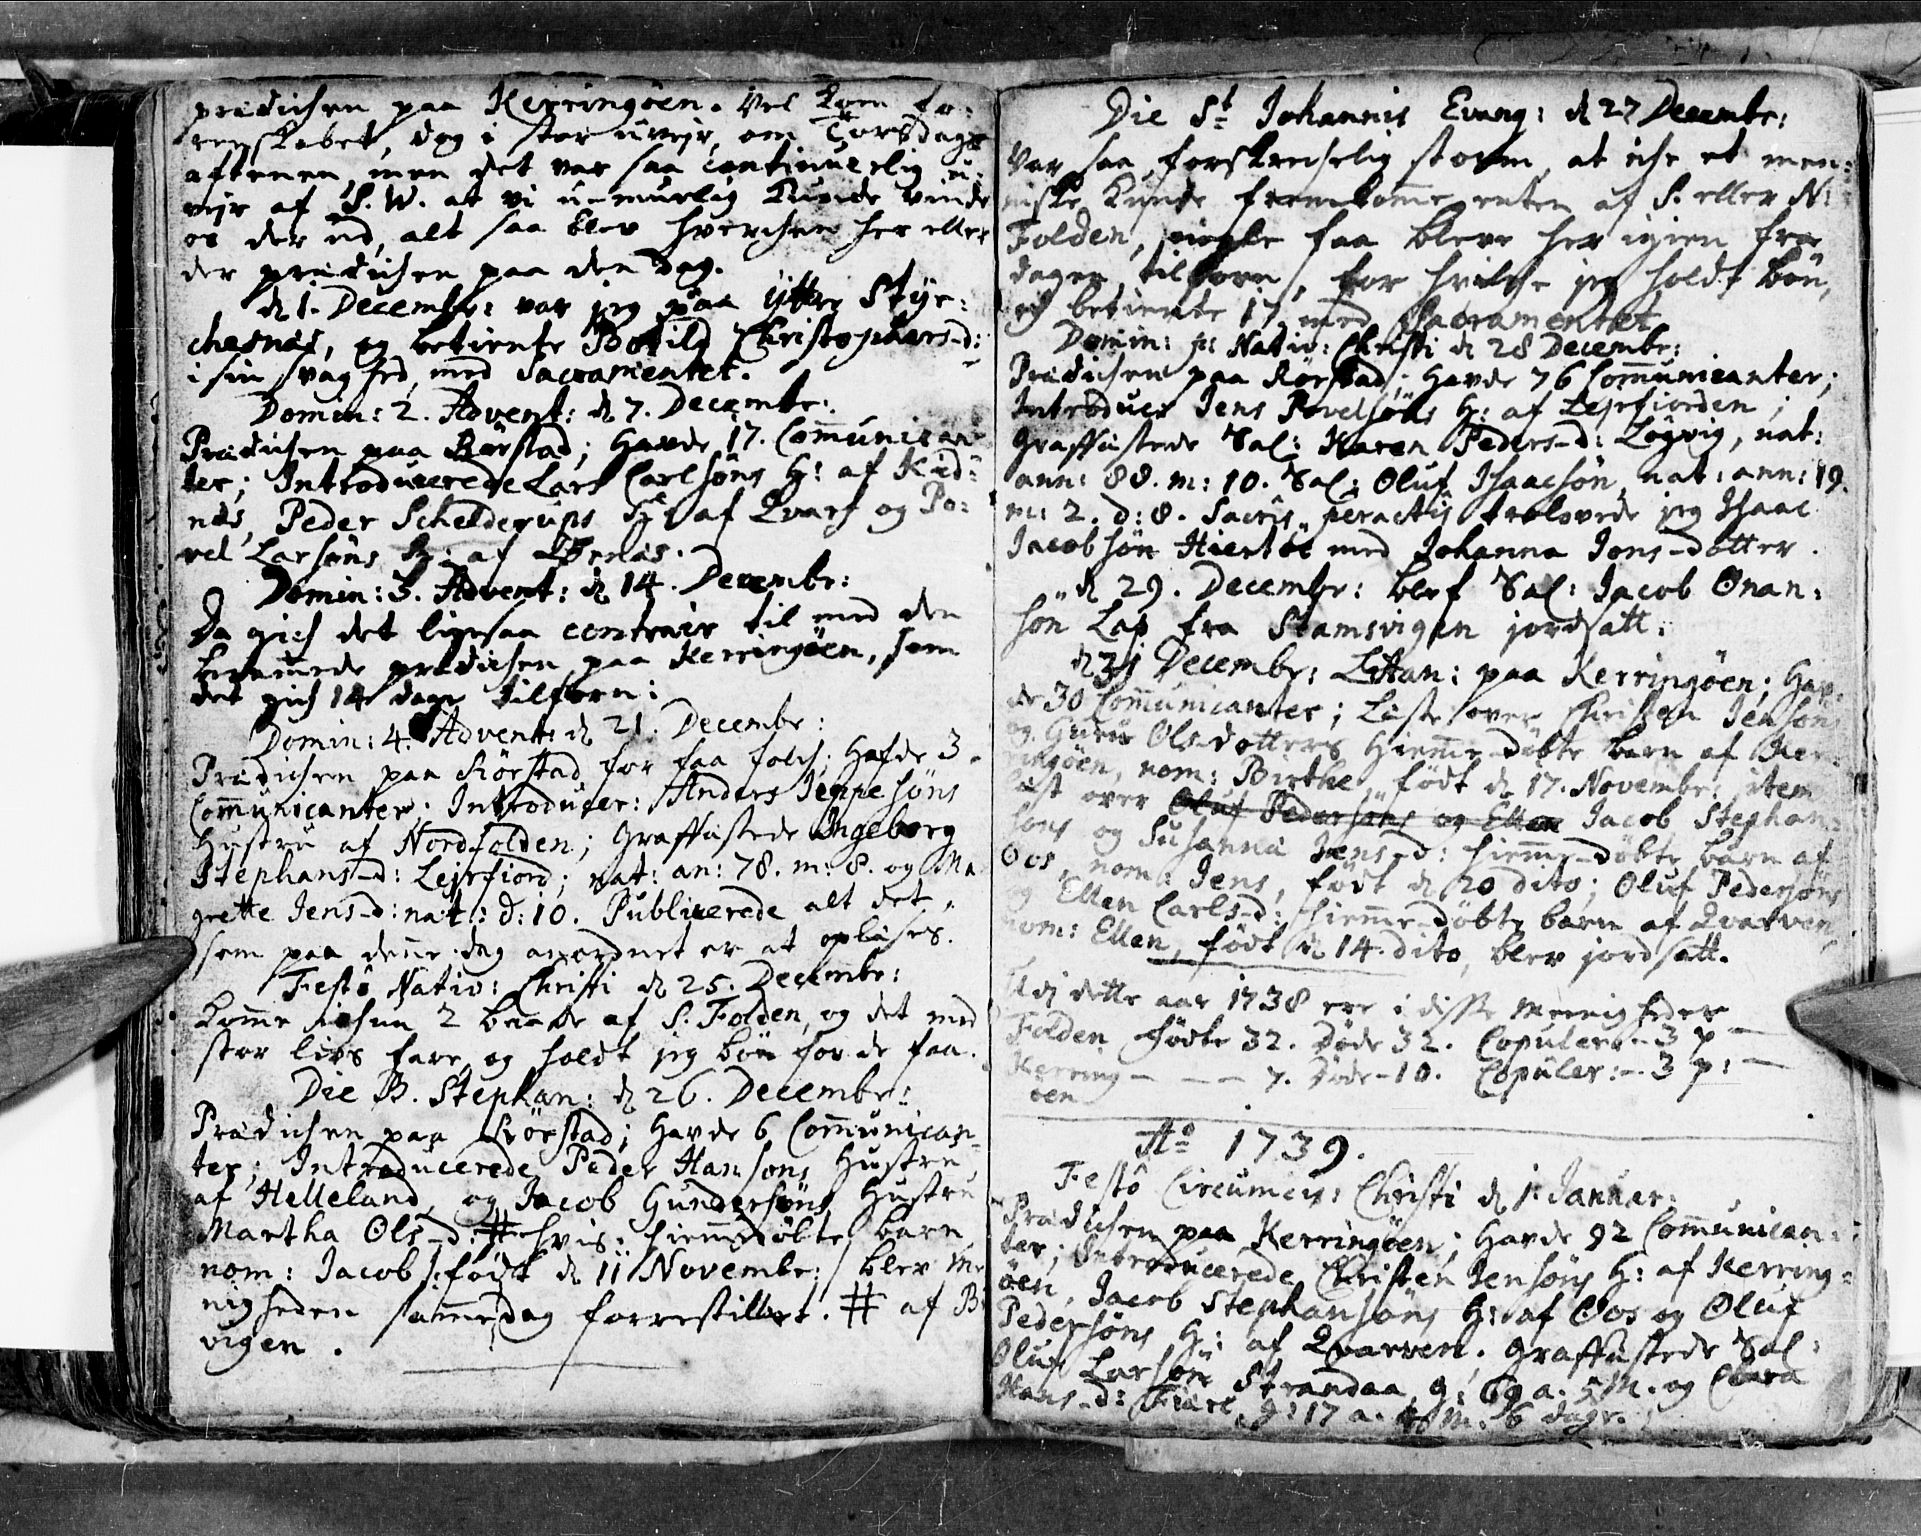 prædichen paa Kerringøen. Vel kom fo-
renskabet, dog i stor uvejr, om Torsdags
aftenen, men det var saa continuerlig u-
vejr af S. W. at vi u-muelig kunde vinde
os der ud, alt saa blev hverchen her eller
der prædichen paa den dag.
d 1. Decembr: var jeg paa ytter Stye-
chesnæs, og betiente Botild Christophers-d:
i sin svaghed, med Sacramentet.
Domin: 2. Advent: d 7. Decembr:
Prædichen paa Rørstad; Havde 17. Communican-
ter; Introducerede Lars Carlsøns H: af Kid-
næs, Peder Schelderups H: af Qvarf og Po-
vel Larsøns H: af
Domin: 3. Advent: d 14. Decembr:
Da gich det ligesaa contrair til med den
berammede prædichen paa Kerringøen, som
det gich 14 dage tilforn:
Domin: 4. Advent: d 21. Decembr:
Prædichen paa Rørstad for faa folch; Hafde 3.
Communicanter; Introducer: Anders Jeppesøns
Hustru af Nordfolden; Graffæstede Ingeborg
Stephans-d: Lejrfiord; nat: an: 78. m: 8. og Ma-
grette Jens-d: nat: d: 10. Publicerede alt det,
som paa denne dag anordnet er at oplæses.
Festô Nativ: Christi d 25. Decembr:
Komme ichun 2 baade af S. Folden, og det med
stor livs fare, og holdt jeg bøn for de faa.
Die B. Stephan: d 26. Decembr:
Prædichen paa Rörstad; Havde 6 Communican-
ter; Introducerede Peder Hansøns Hustru
af Helleland, og Jacob Gundersøns Hustru
Martha Ols-d: # hvis hiemmedøbte barn
nom: Jacob/: født d 11 Novembr: / blev Me-
nigheden samme dag forrestillet. # af B
vigen.
Die St Johannis Evang: d 27 Decembr:
Var saa forskrechelig storm, at iche et men-
niske kunde fremkomme enten af S. eller N:
Folden, nogle faa bleve her igien fra
dagen tilforn, for hvilche jeg holdt bøn,
og betiente 17 med Sacramentet.
Domin: p: Nativ: Christi d 28 Decembr:
Prædichen paa Rørstad; Havde 76 Communicanter;
Introducr Jens Povelsøns H: af Lejrfiorden;
Graffæstede Sal: Karen Peders-d: Løgvig, nat:
ann: 88. m: 10. Sal: Oluf Isaacsøn, nat: ann: 19.
m: 2. d: 8. Sacris peractis trolovede jeg Isaac
Jacobsøn Hiertøe med Johanna Jons-dotter.
d 29. Decembr: blef Sal: Jacob Onan-
søn Lap fra Stamsvigen jordsatt.
d 31 Decembr: Littan: paa Kerringøen; Hav-
de 30 Communicanter; Læste over Christen Jensøns
og Olsdotters hiemme-døbte barn af Ker-
ringøen, nom: Birthe, født d 17. Novembr: item
læst over Oluf Pedersøns og Ellen Jacob Stephan-
søns og Susanna Jens-d: hiemme-døbte barn af
Oos, nom: Jens, født d 20 dito; Oluf Pedersøns
og Ellen Carls-d: hiemme-døbte barn af Qvarven,
nom: Ellen, født d 14. dito, blev jordsatt.
Udj dette aar 1738 ere i disse Menigheder
Folden fødte 32. Døde 32. Copulere - 3 p -
Kerring - - - 7. Døde - 10. Copuler: - 3 p: -
øen
Ao 1739.
Festô Circumcis: Christi d 1. Januar:
Prædichen paa Kerringøen; Havde 92 Communican-
ter; Introducerede Christen Jensøns H: af Kerring-
øen, Jacob Stephansøns H: af Oos og Oluf
Pedersøns H: af Qvarven. Graffæstede Sal:
Oluf Larsøn Strandaa, g: 69 a. 5 M. og Clara
Hans-d: g: 17 a. M. 6 dage.